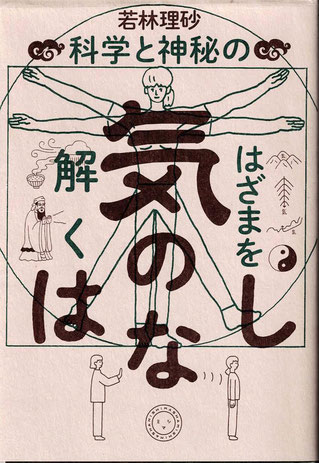 若林理砂
科学と神秘の
はざまを
解く
気のはなし